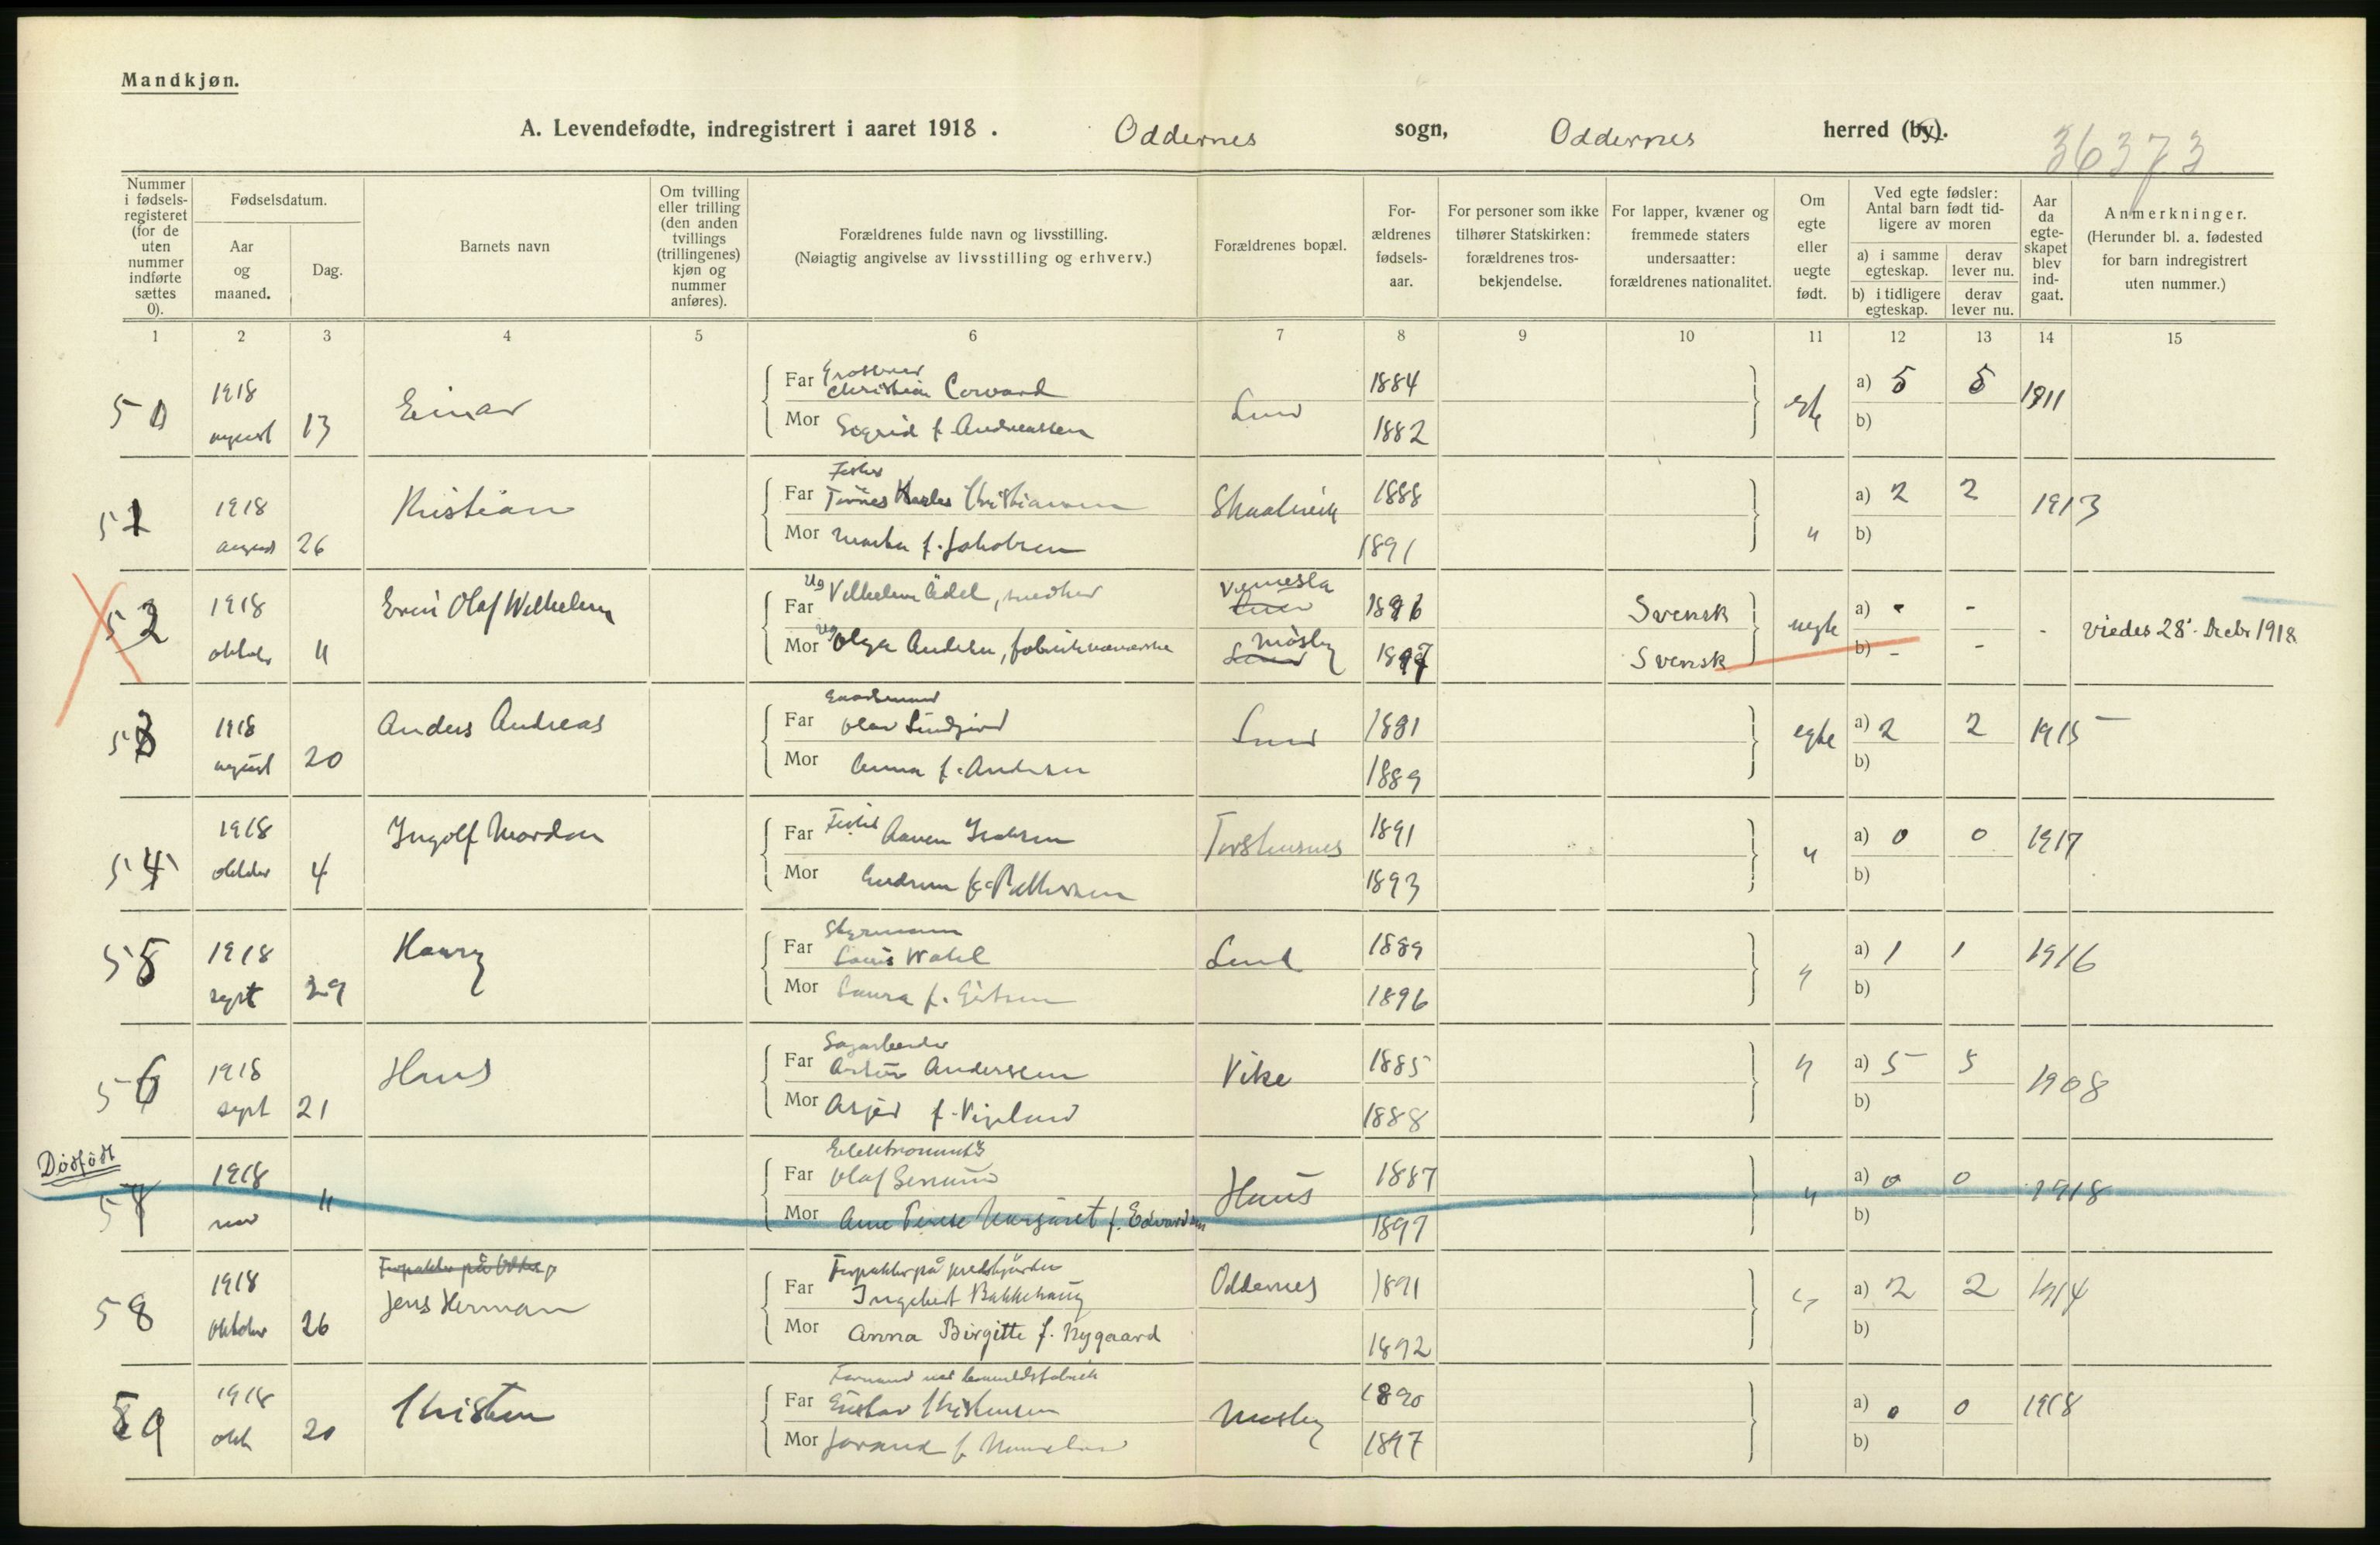 Mandkjøn.
A. Levendefødte, indregistrert i aaret 1918. Oddernes sogn, Oddernes herred (by).
36373
Nummer i fødselsregisteret (for de uten nummer indførte sættes 0).
Fødselsdatum.
Aar og maaned.
Dag.
Barnets navn
Om tvilling eller trilling (den anden tvillings (trillingenes) kjøn og nummer anføres).
Forældrenes fulde navn og livsstilling.
(Nøiagtig angivelse av livsstilling og erhverv.)
Forældrenes bopæl.
Forældrenes fødselsaar.
For personer som ikke tilhører Statskirken: forældrenes trosbekjendelse.
For lapper, kvæner og fremmede staters undersaatter: forældrenes nationalitet.
Om egte eller uegte født.
Ved egte fødsler: Antal barn født tidligere av moren
a) i samme egteskap.
derav lever nu.
b) i tidligere egteskap.
derav lever nu.
Aar da egteskapet blev indgaat.
Anmerkninger.
(Herunder bl. a. fødested for barn indregistrert uten nummer.)
1 2 3 4 5 6 7 8 9 10 11 12 13 14 15
50 1918 august 13 Einar
Far Christian 1884 egte a) 5 5 1911
Mor Sigrid f. Andreassen Lund 1882 b)
51 1918 august 26 Kristian
Fisker
Far Christiansen 1888 a) 2 2 1913
Mor f. Jakobsen 1891 " b)
52 1918 oktober 11 Olaf Wilhelm
Far Ug Vilhelm Ädel, Vennesla 1896 Svensk uegte a) - -
Mor Ug Olga Andersen, Mosby 1897 Svensk b) - - - Viedes 28. Decbr 1918
53 1918 august 20 Anders Andreas
Far Olav 1881 egte a) 2 2 1915
Mor Anna f. Andersen Lund 1889 b)
54 1918 oktober 4 Ingolf
Far Fisker 1891 " a) 0 0 1917
Mor Gudrun f. 1893 b)
55 1918 sept 29 Harry
Styrmann
Far Louis Wahl Lund 1889 " a) 1 1 1916
Mor Laura f. 1896 b)
56 1918 sept 21 Hans
Sagarbeider
Far Artur Andersen Vike 1885 " a) 5 5 1908
Mor Asjer f. Vigeland 1888 b)
Dødfødt
57 1918 nov 11
Far Olaf 1887 " a) 0 0 1918
Mor Ane Terese Margaret f. Edvardsen 1897 b)
58 1918 oktober 26 Jens Herman
Far Ingebert Bakkehaug Oddernes 1891 " a) 2 2 1914
Mor Anna Birgitte f. Nygaard 1892 b)
59 1918 okt 20 Kristen
Far Gustav Christensen Mosby 1890 a) 0 0 1918
Mor Jorand f. 1897 b)